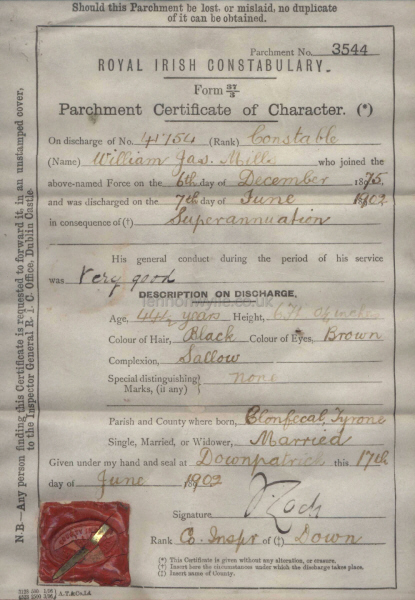 Should this Parchment be lost, or mislaid, no duplicate
of it can be obtained.
Parchment No. 3544
ROYAL IRISH CONSTABULARY.
Form 37/3
Parchment Certificate of Character. (*)
On discharge of No. 41754 (Rank) Constable
(Name) William Jas. Mills who joined the
above-named Force on the 6th day of December 1875
and was discharged on the 7th day of June 1902
in consequence of (†) Superannuation
His general conduct during the period of his service
was Very good
DESCRIPTION ON DISCHARGE,
Age, 44½ years Height, 6 ft
Colour of Hair, Black Colour of Eyes, Brown
Complexion, Sallow
Special distinguishing Marks, (if any) } none
Parish and County where born, Clonfecal Tyrone
Single, Married, or Widower, Married
Given under my hand and seal at Downpatrick this 17th
day of June 1902
Signature
Rank Co. Inspr of (‡) Down
(*) This Certificate is given without any alteration, or erasure.
(†) Insert here the circumstances under which the discharge takes place.
(‡) Insert name of County.
A.T.&Co.Ld.
N.B.—Any person finding this Certificate is requested to forward it, in an unstamped cover,
to the Inspector General R. I. C. Office, Dublin Castle